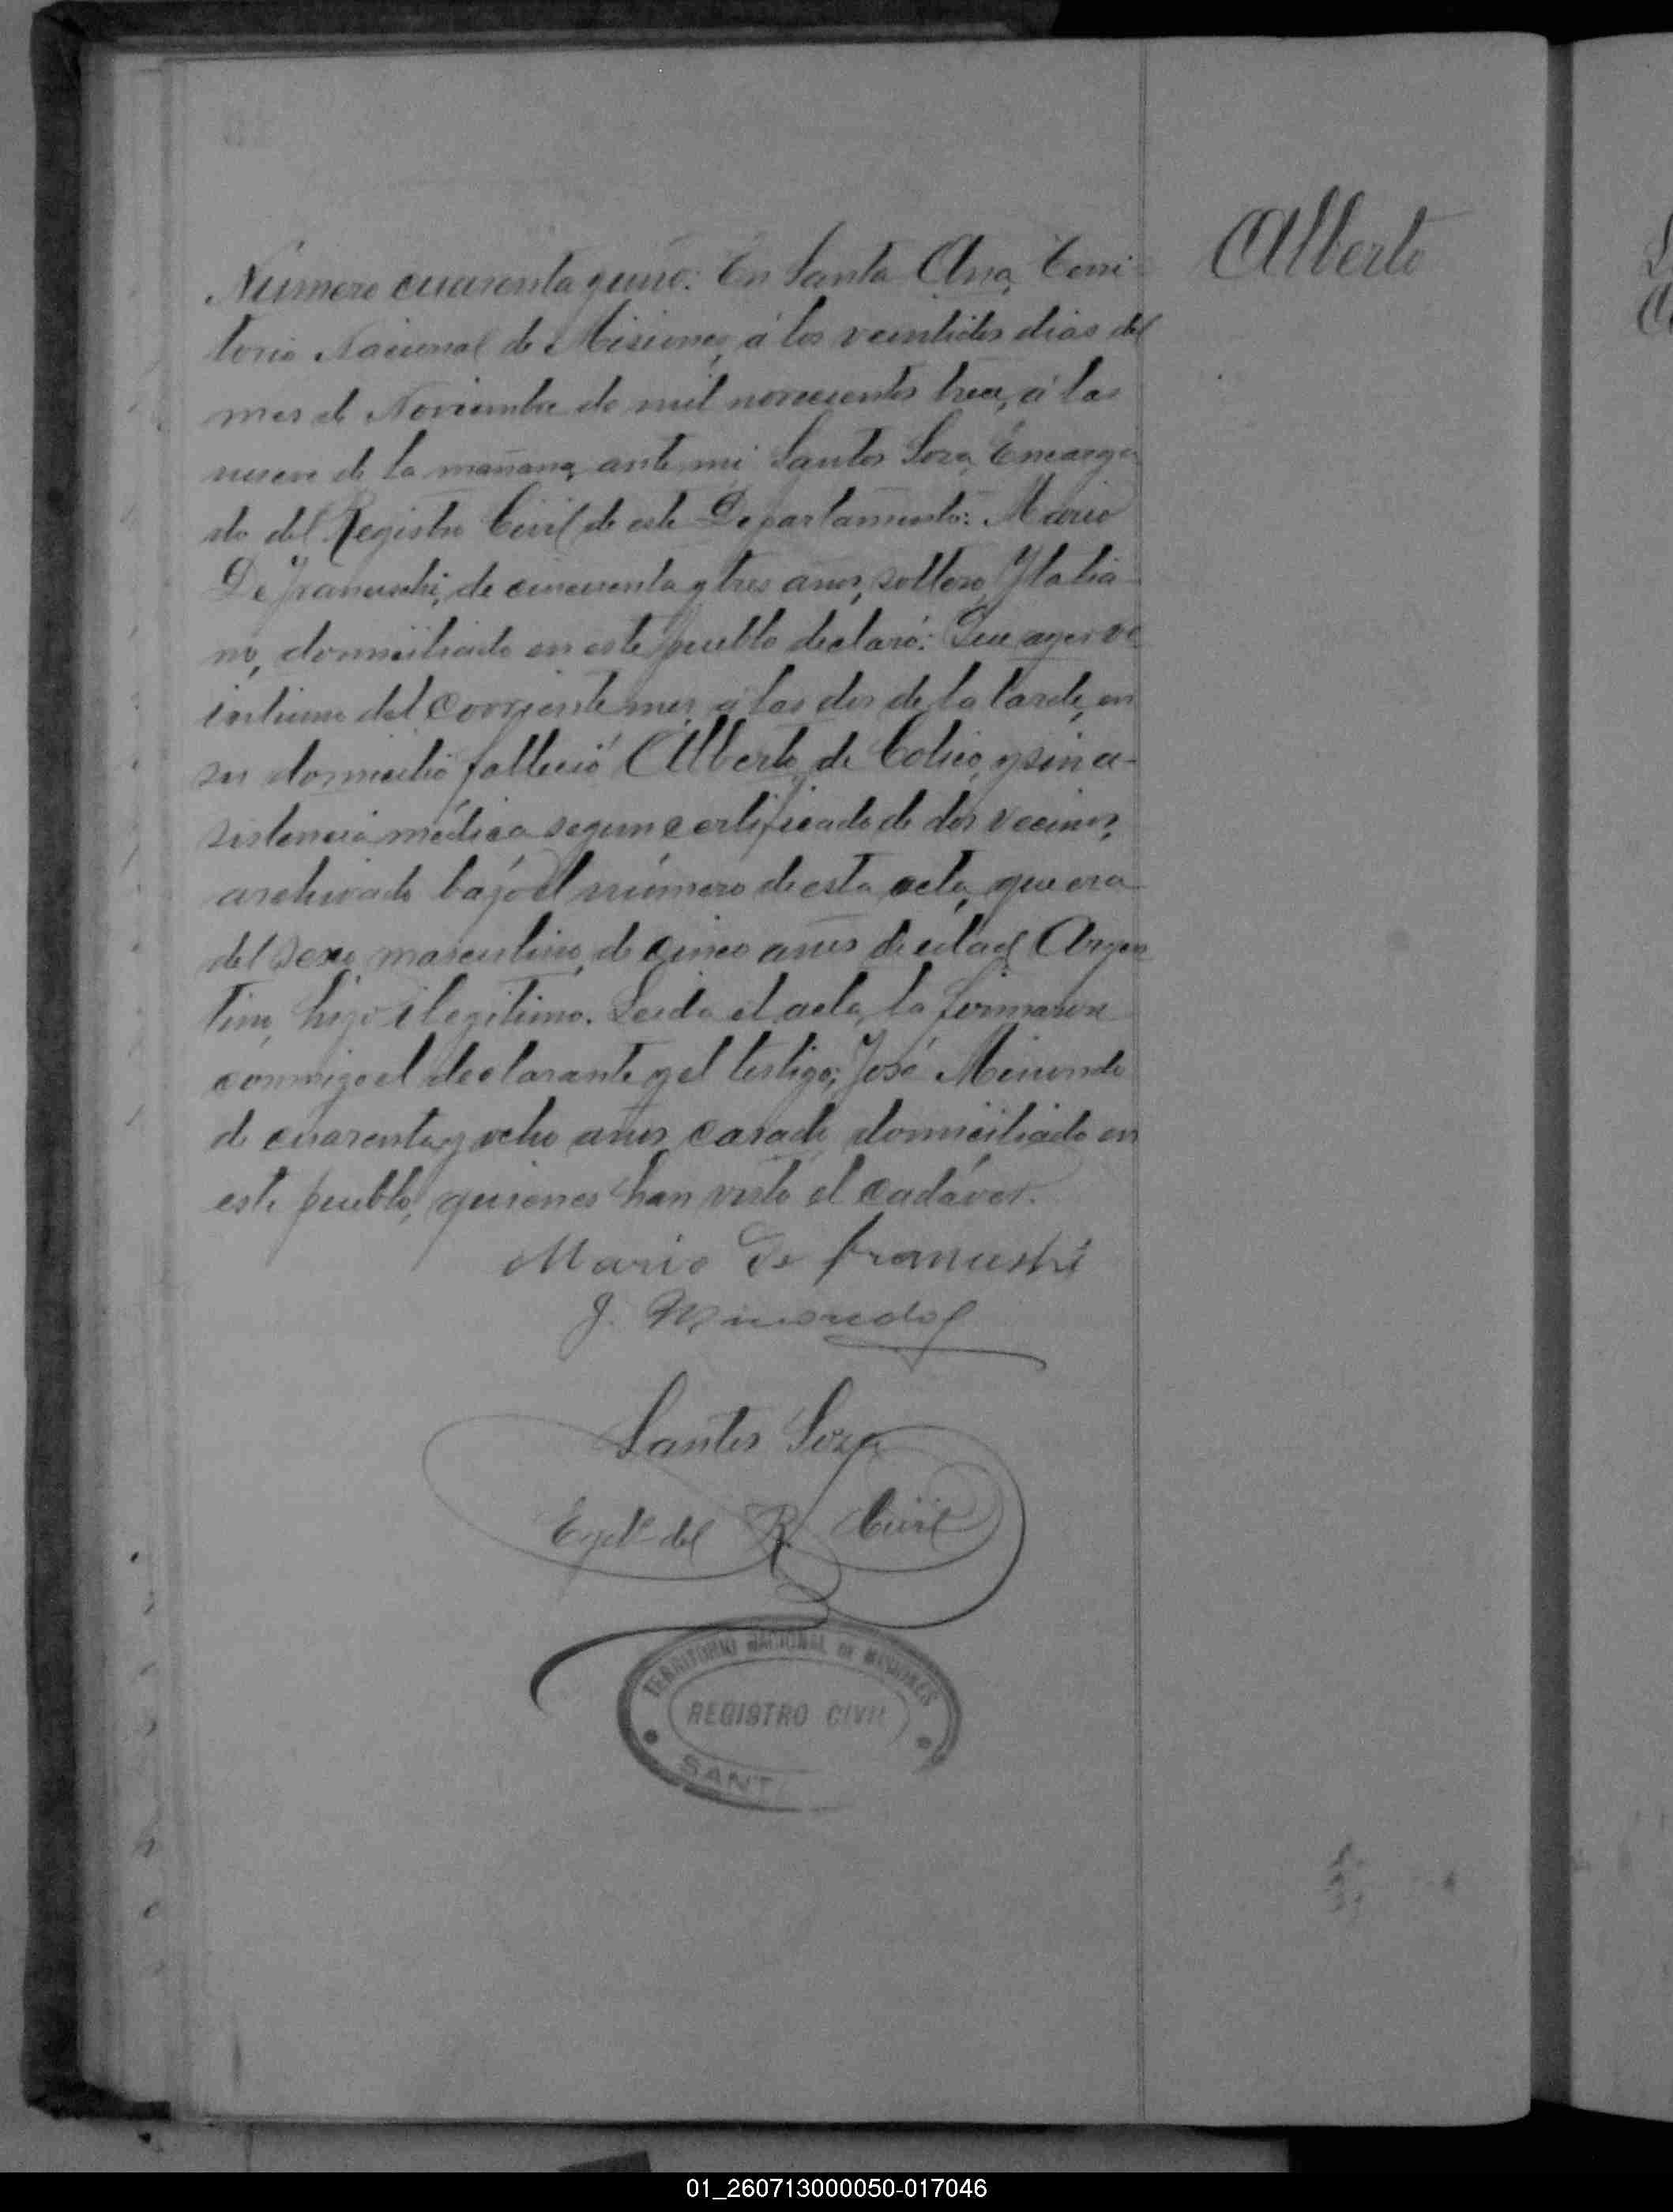 Alberto
Número cuarenta y uno: En Santa Ana, Terri-
torio Nacional de Misiones, á los veintidos dias del
mes de Noviembre de mil novecientos trece, á las
nueve de la mañana, ante mi Santos Soza, Encarga
do del Registro Civil de este Departamento: Mario
De Franceschi, de cincuenta y tres años, soltero, Ytalia-
no, domiciliado en este pueblo declaró: Que ayer ve
intiuno del corriente mes á las dos de la tarde, en
su domicilio falleció Alberto, de Cólico, y sin a-
sistencia médica segun certificado de dos vecinos,
archivado bajo el número de esta acta, que era
del sexo masculino, de cinco años de edad Argen
tino, hijo ilegitimo. Leida el acta, la firmaron
conmigo el declarante y el testigo, José
de cuarenta y ocho años, casado, domiciliado en
este pueblo, quienes han visto el cadáver.
Mario De
J.
Santos Soza
del R. Civil
TERRITORIO NACIONAL DE MISIONES
REGISTRO CIVIL
SANT
01_260713000050-017046